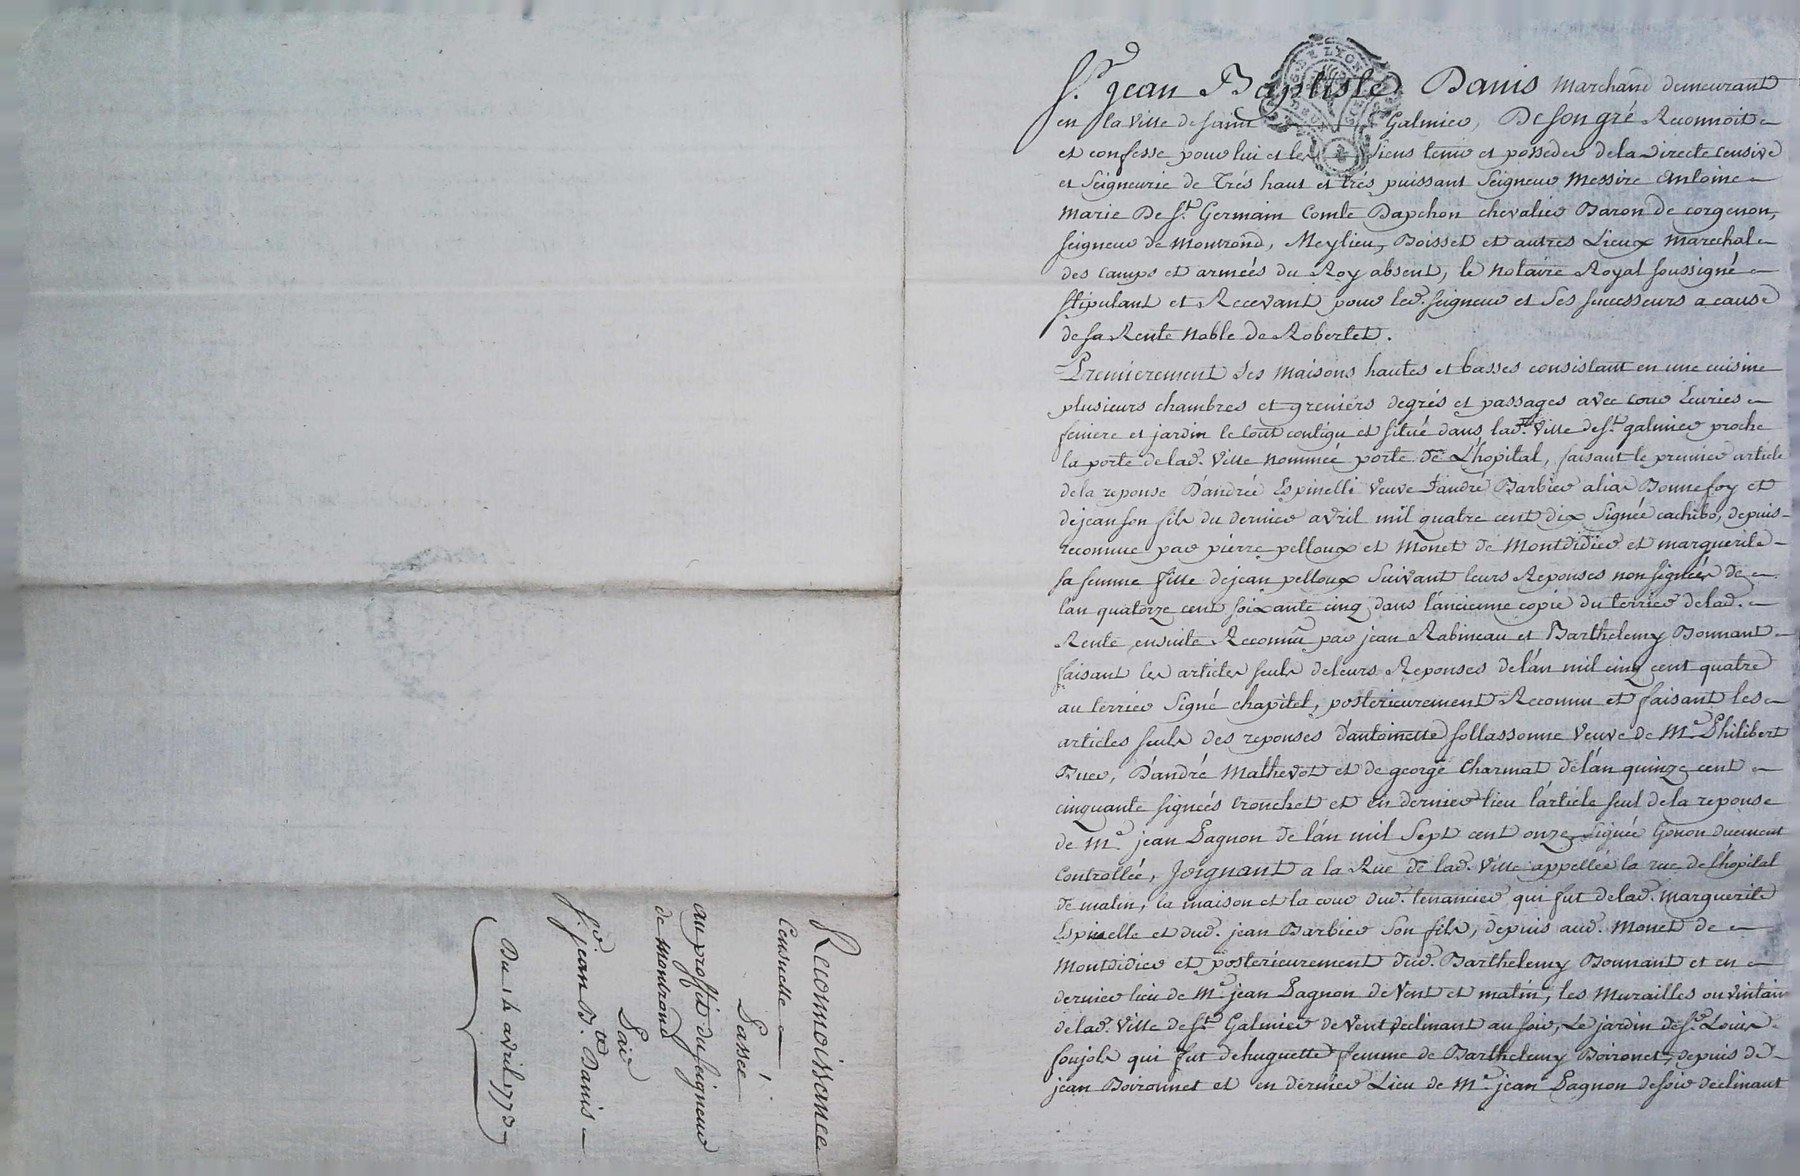 Reconnoissance
Censuelle
Passée
au proffit du seigneur
de montrond
Par
Sr. jean Bte. Danis
Du 14 avril 1773
Sr. jean Baptiste Danis marchand demeurant
en la ville de saint Galmier, De son gré Reconnoit
et confesse pour lui et les siens tenir et posseder de la directe censive
et seigneurie de Trés haut et trés puissant seigneur messire antoine
marie De St. Germain Comte Dapchon chevalier Baron de corgenon,
seigneur de montrond, Meylieu, Boisset et autres Lieux marechal
des camps et armées du Roy absent, le notaire Royal soussigné
stipulant et Recevant pour led. seigneur et ses successeurs a cause
de sa Rente noble de Robertet.
Premierement ses maisons hautes et basses consistant en une cuisine
plusieurs chambres et greniers degrés et passages avec cour Ecuries
feniere et jardin le tout contigu et situé dans lad. ville de St. galmier proche
la porte de lad. ville nommée porte de L'hopital, faisant le premier article
de la reponse D'andrée Espinelli veuve d'andré Barbier alias Bonnefoy et
de jean son fils du dernier avril mil quatre cent dix signée cachibo, depuis
reconnue par pierre pelloux et monet de montdidier et marguerite
sa femme fille de jean pelloux suivant leurs Reponses non signées de
l'an quatorze cent soixante cinq dans l'ancienne copie du terrier de lad.
Rente, ensuite Reconnu par jean Rabineau et Barthelemy Bonnant
faisant les articles seuls de leurs Reponses de l'an mil cinq cent quatre
au terrier signé chapitel, posterieurement Reconnu et faisant les
articles seuls des reponses d'antoinette follassonne veuve de Me. Philibert
Buer, D'andré Mathevot et de george Charmat de l'an quinze cent
cinquante signées Cronchet et en dernier lieu l'article seul de la reponse
de Me. jean Pagnon de l'an mil sept cent onze signée Gonon duement
Controllée, Joignant a la Rue de lad. ville appellée la rue de l'hopital
de matin, la maison et la cour dud. tenancier qui fut de lad. marguerite
Espinelle et dud. jean Barbier son fils, depuis aud. monet de
montdidier et posterieurement dud. Barthelemy Bonnant et en
dernier lieu de Me. jean Pagnon de vent et matin, les murailles ou vintain
de lad. ville de St. Galmier de vent declinant au soir, Le jardin de Sr. Louis
soujols qui fut de huguette femme de Barthelemy Boironet, depuis de
jean Boironnet et en dernier Lieu de Me. jean Pagnon de soir declinant